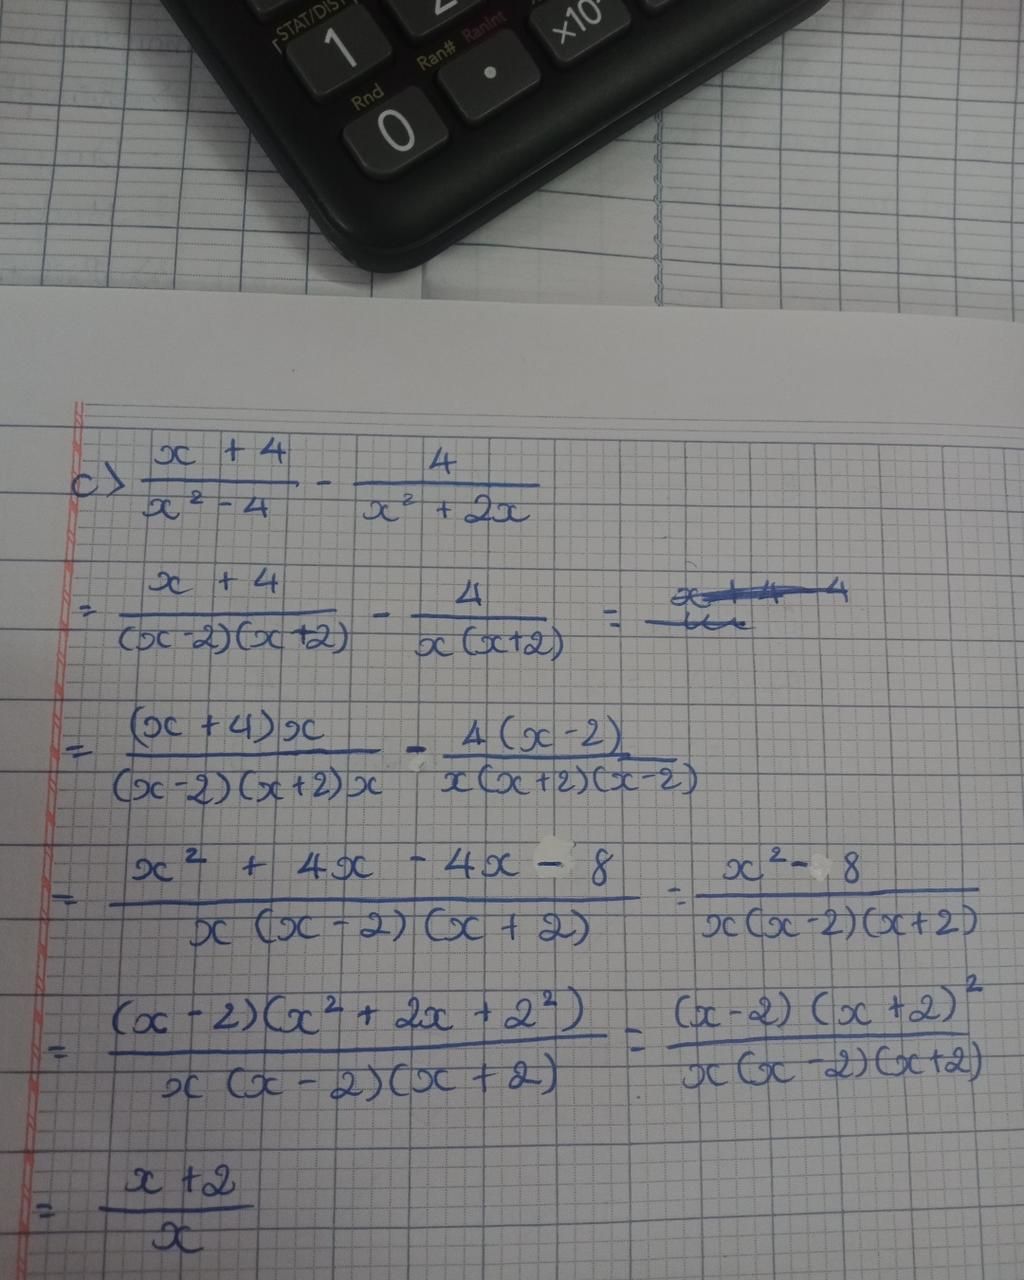 STAT/DIST
1
Ran#
RanInt
×10
Rnd
0
.
c) (x + 4)/(x² - 4) - 4/(x² + 2x)
= (x + 4)/((x-2)(x+2)) - 4/(x(x+2)) =
= ((x+4)x)/((x-2)(x+2)x) - (4(x-2))/(x(x+2)(x-2))
= (x² + 4x - 4x - 8)/(x(x-2)(x+2)) = (x² - 8)/(x(x-2)(x+2))
= ((x-2)(x² + 2x + 2²))/(x(x-2)(x+2)) = ((x-2)(x+2)²)/(x(x-2)(x+2))
= (x+2)/x